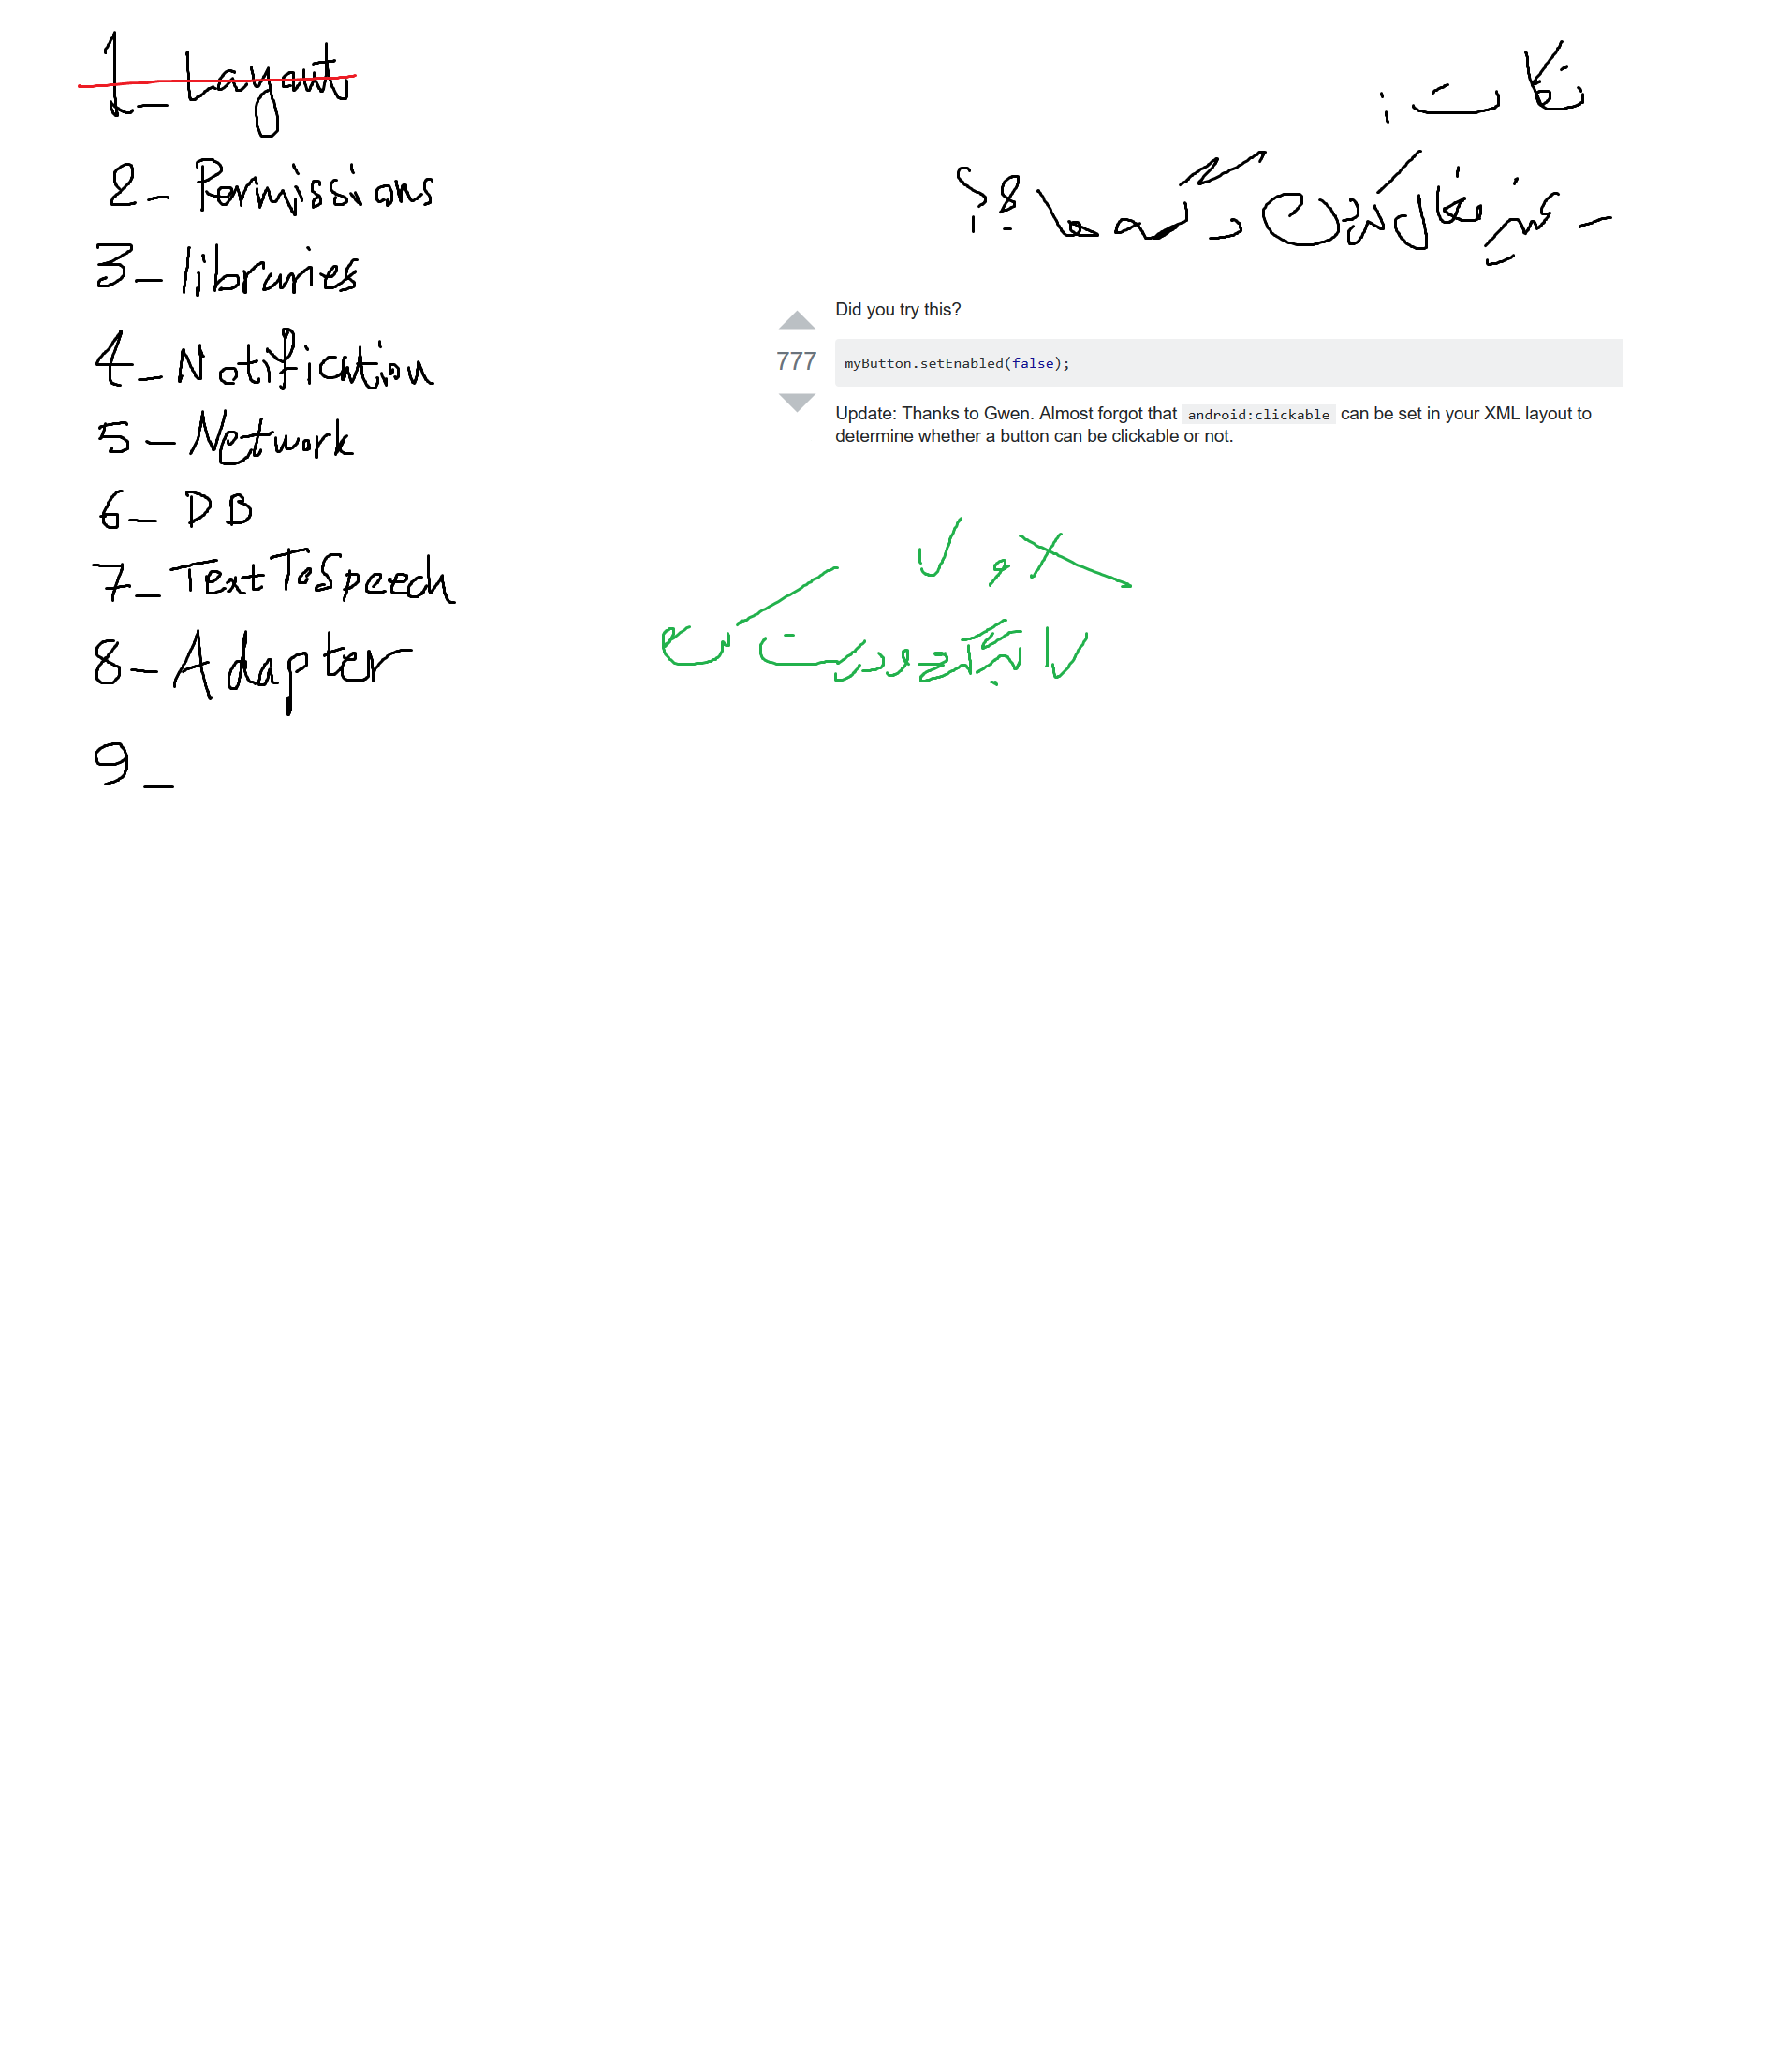 1_ Layout
2_ Permissions
3_ libraries
4_ Notification
5_ Network
6_ DB
7_ TextToSpeech
8_ Adapter
9_
نکات :
_ غیر فعال کردن دکمه ها ؟
Did you try this?
777
myButton.setEnabled(false);
Update: Thanks to Gwen. Almost forgot that android:clickable can be set in your XML layout to
determine whether a button can be clickable or not.
✓ و X
را درست کن